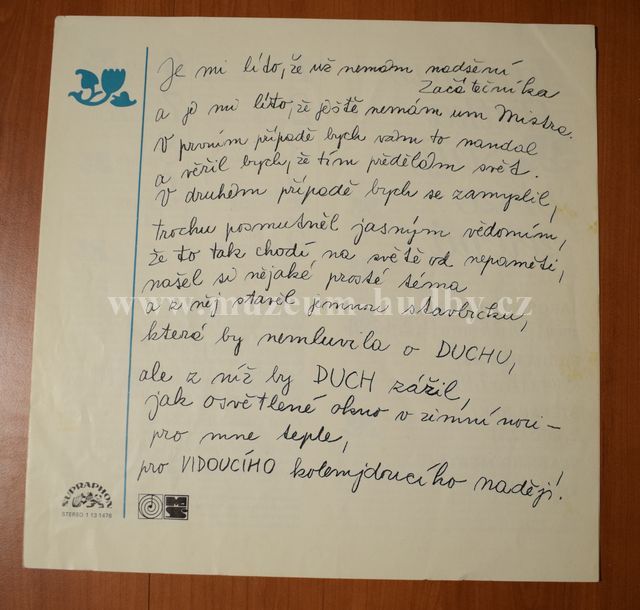 Je mi líto, že už nemám nadšení
Začátečníka
a je mi líto, že ještě nemám um Mistra.
V prvním případě bych vám to nandal
a věřil bych, že tím předělám svět.
V druhém případě bych se zamyslil,
trochu posmutněl jasným vědomím,
že to tak chodí na světě od nepaměti,
našel si nějaké prosté téma
www.muzeum-hudby.cz
a z něj stavěl jemnou stavbičku,
která by nemluvila o DUCHU,
ale z níž by DUCH zářil,
jak osvětlené okno v zimní noci –
pro mne teplé,
pro VIDOUCÍHO kolemjdoucího nadějí!
SUPRAPHON
STEREO 1 13 1476